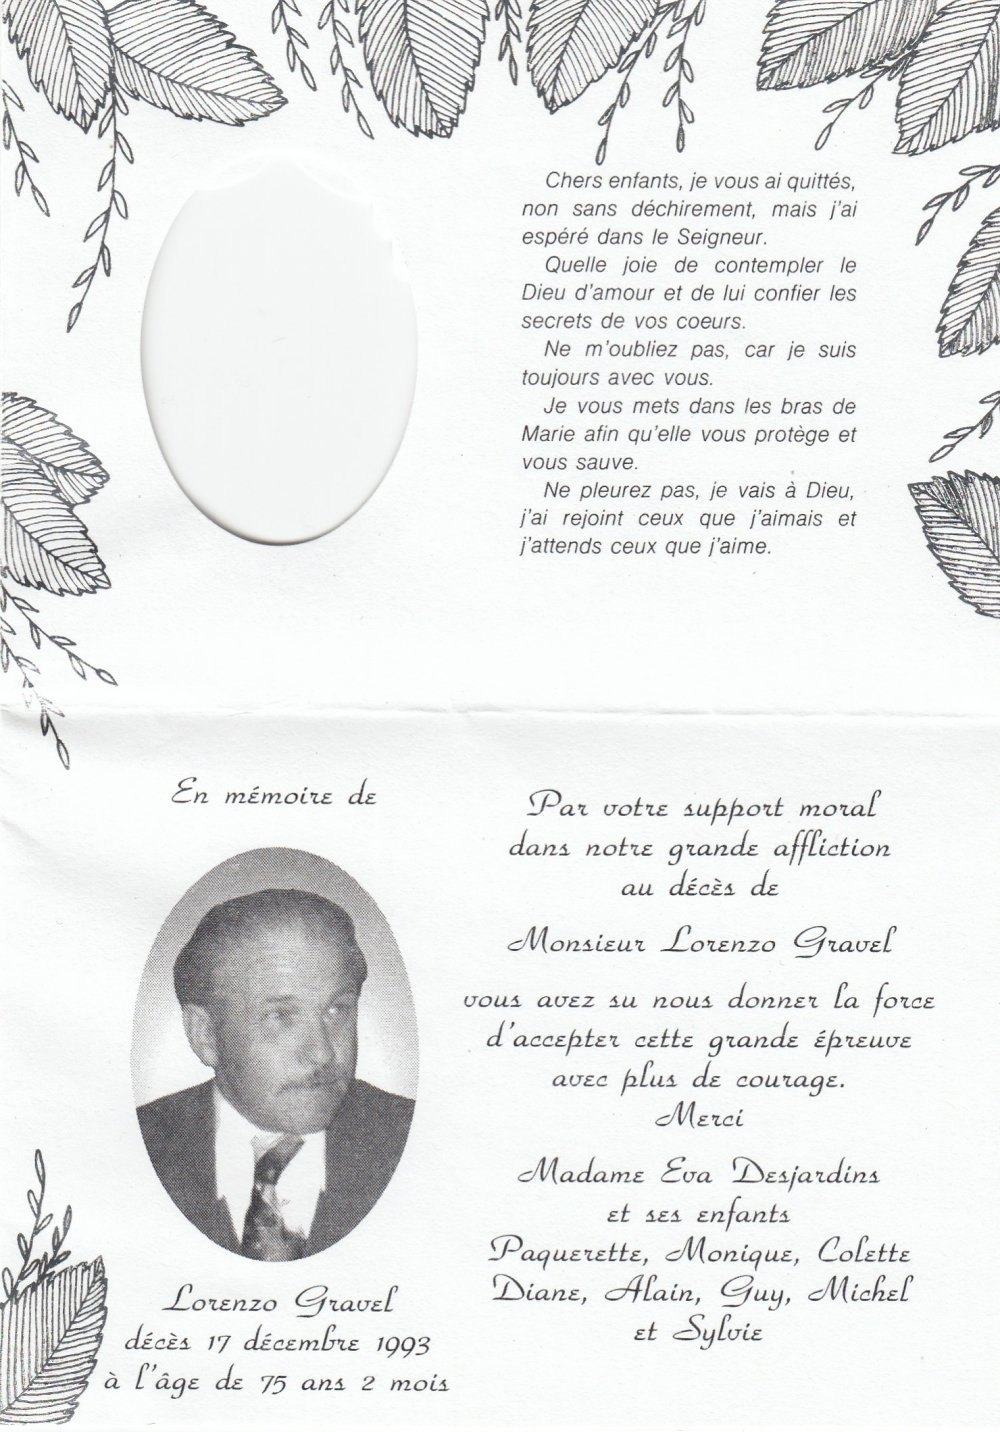 Chers enfants, je vous ai quittés,
non sans déchirement, mais j'ai
espéré dans le Seigneur.
Quelle joie de contempler le
Dieu d'amour et de lui confier les
secrets de vos coeurs.
Ne m'oubliez pas, car je suis
toujours avec vous.
Je vous mets dans les bras de
Marie afin qu'elle vous protège et
vous sauve.
Ne pleurez pas, je vais à Dieu,
j'ai rejoint ceux que j'aimais et
j'attends ceux que j'aime.
En mémoire de
Lorenzo Gravel
décès 17 décembre 1993
à l'âge de 75 ans 2 mois
Par votre support moral
dans notre grande affliction
au décès de
Monsieur Lorenzo Gravel
vous avez su nous donner la force
d'accepter cette grande épreuve
avec plus de courage.
Merci
Madame Eva Desjardins
et ses enfants
Paquerette, Monique, Colette
Diane, Alain, Guy, Michel
et Sylvie